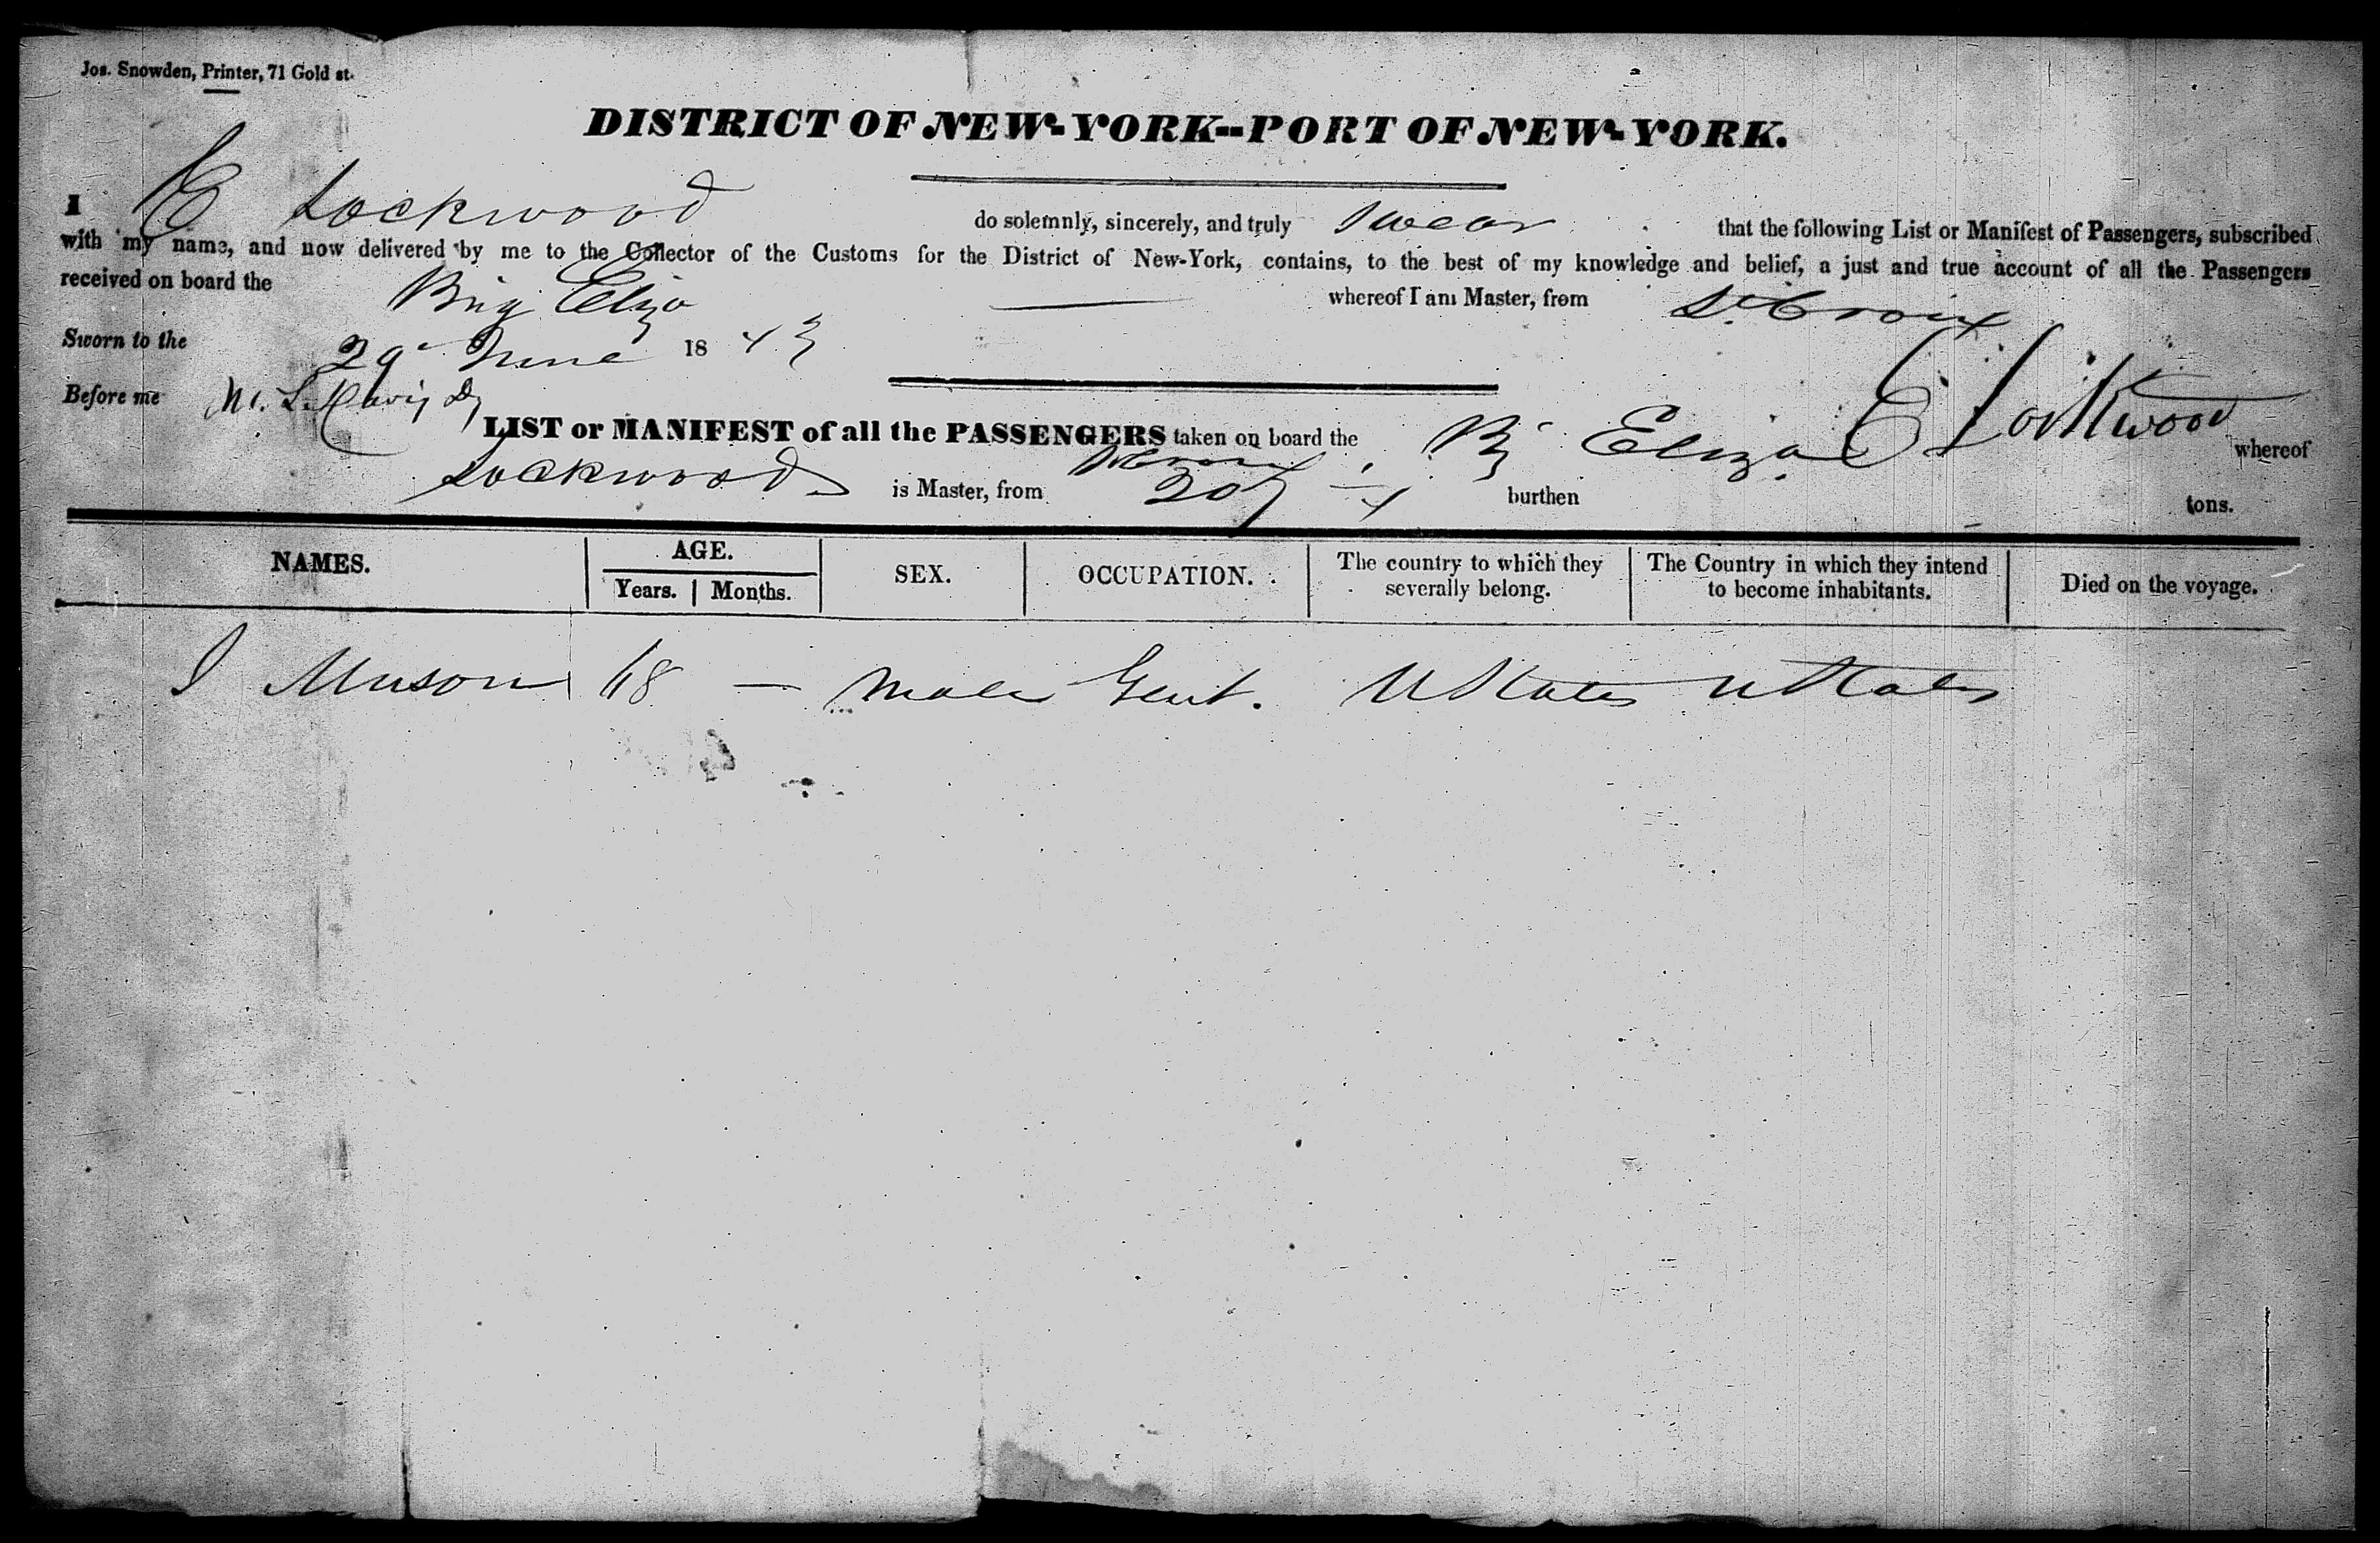 Jos. Snowden, Printer, 71 Gold st.
DISTRICT OF NEW-YORK--PORT OF NEW-YORK.
I E Lockwood do solemnly, sincerely, and truly swear that the following List or Manifest of Passengers, subscribed
with my name, and now delivered by me to the Collector of the Customs for the District of New-York, contains, to the best of my knowledge and belief, a just and true account of all the Passengers
received on board the Brig Eliza whereof I am Master, from St Croix
Sworn to the 29 June 1843
E Lockwood
Before me
LIST or MANIFEST of all the PASSENGERS taken on board the Bg Eliza whereof
Lockwood is Master, from St Croix burthen 207 tons.
NAMES. AGE. Years. Months. SEX. OCCUPATION. The country to which they severally belong. The Country in which they intend to become inhabitants. Died on the voyage.
J Munson 68 — Male Gent. U States U States